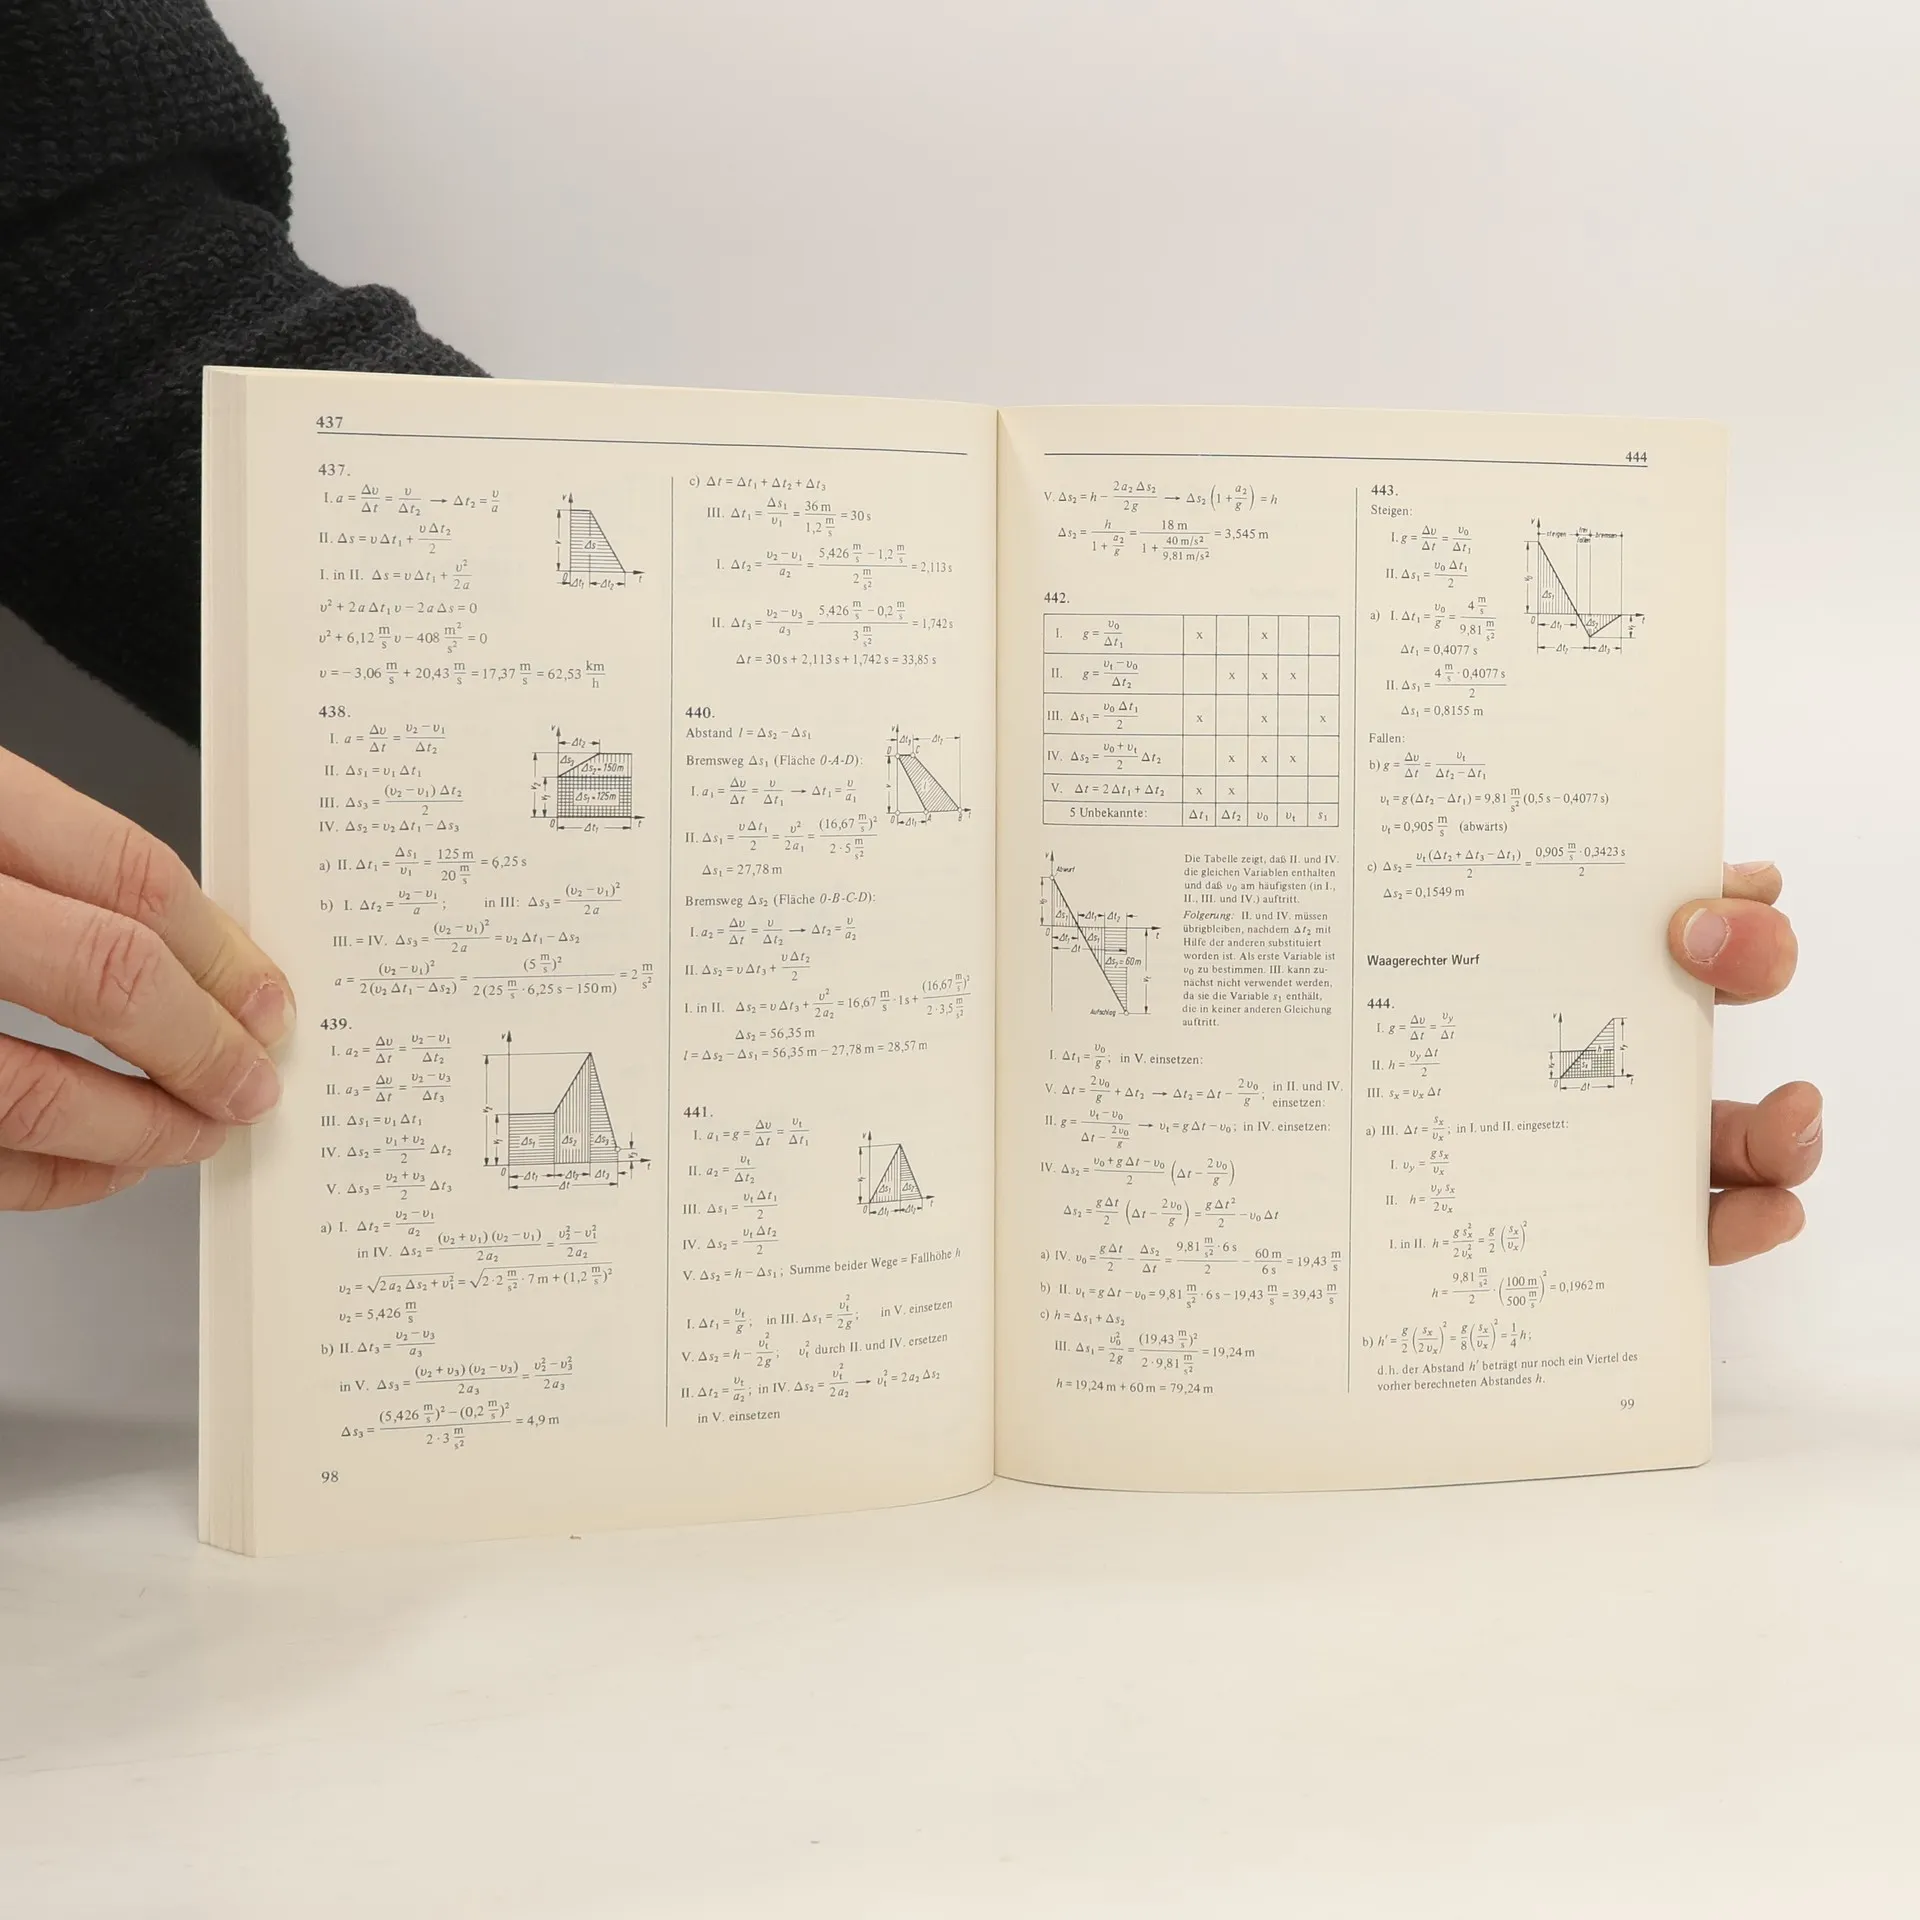 437
437.
I. a = Δυ/Δt = υ/Δt₂ → Δt₂ = υ/a
II. Δs = υ Δt₁ + υ Δt₂/2
I. in II. Δs = υ Δt₁ + υ²/2a
υ² + 2a Δt₁ υ − 2a Δs = 0
υ² + 6,12 m/s υ − 408 m²/s² = 0
υ = − 3,06 m/s + 20,43 m/s = 17,37 m/s = 62,53 km/h
438.
I. a = Δυ/Δt = (υ₂ − υ₁)/Δt₂
II. Δs₁ = υ₁ Δt₁
III. Δs₃ = (υ₂ − υ₁) Δt₂/2
IV. Δs₂ = υ₂ Δt₁ − Δs₃
Δs₂ = 150m
Δs₁ = 125m
a) II. Δt₁ = Δs₁/υ₁ = 125 m/(20 m/s) = 6,25 s
b) I. Δt₂ = (υ₂ − υ₁)/a ; in III: Δs₃ = (υ₂ − υ₁)²/2a
III. = IV. Δs₃ = (υ₂ − υ₁)²/2a = υ₂ Δt₁ − Δs₂
a = (υ₂ − υ₁)²/2(υ₂ Δt₁ − Δs₂) = (5 m/s)²/2(25 m/s · 6,25 s − 150 m) = 2 m/s²
439.
I. a₂ = Δυ/Δt = (υ₂ − υ₁)/Δt₂
II. a₃ = Δυ/Δt = (υ₂ − υ₃)/Δt₃
III. Δs₁ = υ₁ Δt₁
IV. Δs₂ = (υ₁ + υ₂)/2 Δt₂
V. Δs₃ = (υ₂ + υ₃)/2 Δt₃
a) I. Δt₂ = (υ₂ − υ₁)/a₂
in IV. Δs₂ = (υ₂ + υ₁)(υ₂ − υ₁)/2a₂ = (υ₂² − υ₁²)/2a₂
υ₂ = √(2a₂ Δs₂ + υ₁²) = √(2 · 2 m/s² · 7 m + (1,2 m/s)²)
υ₂ = 5,426 m/s
b) II. Δt₃ = (υ₂ − υ₃)/a₃
in V. Δs₃ = (υ₂ + υ₃)(υ₂ − υ₃)/2a₃ = (υ₂² − υ₃²)/2a₃
Δs₃ = ((5,426 m/s)² − (0,2 m/s)²)/(2 · 3 m/s²) = 4,9 m
98
c) Δt = Δt₁ + Δt₂ + Δt₃
III. Δt₁ = Δs₁/υ₁ = 36 m/(1,2 m/s) = 30 s
I. Δt₂ = (υ₂ − υ₁)/a₂ = (5,426 m/s − 1,2 m/s)/(2 m/s²) = 2,113 s
II. Δt₃ = (υ₂ − υ₃)/a₃ = (5,426 m/s − 0,2 m/s)/(3 m/s²) = 1,742 s
Δt = 30 s + 2,113 s + 1,742 s = 33,85 s
440.
Abstand l = Δs₂ − Δs₁
Bremsweg Δs₁ (Fläche 0-A-D):
I. a₁ = Δυ/Δt = υ/Δt₁ → Δt₁ = υ/a₁
II. Δs₁ = υ Δt₁/2 = υ²/2a₁ = (16,67 m/s)²/(2 · 5 m/s²)
Δs₁ = 27,78 m
Bremsweg Δs₂ (Fläche 0-B-C-D):
I. a₂ = Δυ/Δt = υ/Δt₂ → Δt₂ = υ/a₂
II. Δs₂ = υ Δt₃ + υ Δt₂/2
I. in II. Δs₂ = υ Δt₃ + υ²/2a₂ = 16,67 m/s · 1s + (16,67 m/s)²/(2 · 3,5 m/s²)
Δs₂ = 56,35 m
l = Δs₂ − Δs₁ = 56,35 m − 27,78 m = 28,57 m
441.
I. a₁ = g = Δυ/Δt = υt/Δt₁
II. a₂ = υt/Δt₂
III. Δs₁ = υt Δt₁/2
IV. Δs₂ = υt Δt₂/2
V. Δs₂ = h − Δs₁ ; Summe beider Wege = Fallhöhe h
I. Δt₁ = υt/g ; in III. Δs₁ = υt²/2g ; in V. einsetzen
V. Δs₂ = h − υt²/2g ; υt² durch II. und IV. ersetzen
II. Δt₂ = υt/a₂ ; in IV. Δs₂ = υt²/2a₂ → υt² = 2a₂ Δs₂
in V. einsetzen
444
V. Δs₂ = h − 2a₂ Δs₂/2g → Δs₂ (1 + a₂/g) = h
Δs₂ = h/(1 + a₂/g) = 18 m/(1 + (40 m/s²)/(9,81 m/s²)) = 3,545 m
442.
I. g = υ₀/Δt₁ x x
II. g = (υt − υ₀)/Δt₂ x x x
III. Δs₁ = υ₀ Δt₁/2 x x x
IV. Δs₂ = (υ₀ + υt)/2 Δt₂ x x x
V. Δt = 2Δt₁ + Δt₂ x x
5 Unbekannte: Δt₁ Δt₂ υ₀ υt s₁
Abwurf
Δs₂ = 60m
Aufschlag
Die Tabelle zeigt, daß II. und IV.
die gleichen Variablen enthalten
und daß υ₀ am häufigsten (in I.,
II., III. und IV.) auftritt.
Folgerung: II. und IV. müssen
übrigbleiben, nachdem Δt₂ mit
Hilfe der anderen substituiert
worden ist. Als erste Variable ist
υ₀ zu bestimmen. III. kann zu-
nächst nicht verwendet werden,
da sie die Variable s₁ enthält,
die in keiner anderen Gleichung
auftritt.
I. Δt₁ = υ₀/g ; in V. einsetzen:
V. Δt = 2υ₀/g + Δt₂ → Δt₂ = Δt − 2υ₀/g ; in II. und IV. einsetzen:
II. g = (υt − υ₀)/(Δt − 2υ₀/g) → υt = g Δt − υ₀ ; in IV. einsetzen:
IV. Δs₂ = (υ₀ + g Δt − υ₀)/2 (Δt − 2υ₀/g)
Δs₂ = g Δt/2 (Δt − 2υ₀/g) = g Δt²/2 − υ₀ Δt
a) IV. υ₀ = g Δt/2 − Δs₂/Δt = (9,81 m/s² · 6 s)/2 − 60 m/6 s = 19,43 m/s
b) II. υt = g Δt − υ₀ = 9,81 m/s² · 6 s − 19,43 m/s = 39,43 m/s
c) h = Δs₁ + Δs₂
III. Δs₁ = υ₀²/2g = (19,43 m/s)²/(2 · 9,81 m/s²) = 19,24 m
h = 19,24 m + 60 m = 79,24 m
443.
Steigen:
I. g = Δυ/Δt = υ₀/Δt₁
II. Δs₁ = υ₀ Δt₁/2
steigen
frei
fallen
bremsen
a) I. Δt₁ = υ₀/g = (4 m/s)/(9,81 m/s²)
Δt₁ = 0,4077 s
II. Δs₁ = (4 m/s · 0,4077 s)/2
Δs₁ = 0,8155 m
Fallen:
b) g = Δυ/Δt = υt/(Δt₂ − Δt₁)
υt = g (Δt₂ − Δt₁) = 9,81 m/s² (0,5 s − 0,4077 s)
υt = 0,905 m/s (abwärts)
c) Δs₂ = υt (Δt₂ + Δt₃ − Δt₁)/2 = (0,905 m/s · 0,3423 s)/2
Δs₂ = 0,1549 m
Waagerechter Wurf
444.
I. g = Δυ/Δt = υy/Δt
II. h = υy Δt/2
III. sx = υx Δt
a) III. Δt = sx/υx ; in I. und II. eingesetzt:
I. υy = g sx/υx
II. h = υy sx/2υx
I. in II. h = g sx²/2υx² = g/2 (sx/υx)²
h = (9,81 m/s²)/2 · (100 m/(500 m/s))² = 0,1962 m
b) h′ = g/2 (sx/2υx)² = g/8 (sx/υx)² = 1/4 h ;
d.h. der Abstand h′ beträgt nur noch ein Viertel des
vorher berechneten Abstandes h.
99